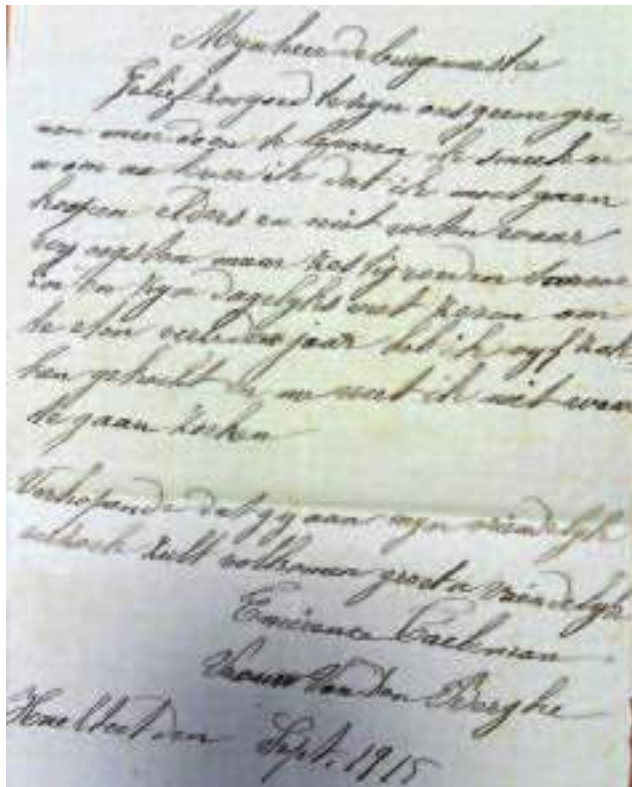 Mynheer de burgemeester
Gelief zoo goed te zyn ons geene gra
aan meer doen te leveren ik smeek er
u om nu hoor ik dat ik moet gaan
koopen elders en niet weten waar
wy oogsten maar
en zyn dagelyks met om
te eten verleden jaar heb ik vyf zak
ken gekocht en nu weet ik niet waar
te gaan zoeken
Verhopende dat gy aan myn vriendelyk
verzoek zult voldoen groet u vriendelyk
Emerance Caekman
Vrouw Van den Berghe
Haeltert den Sept. 1915